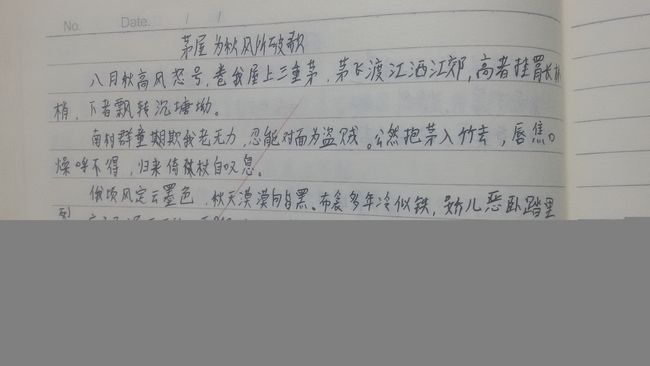 No.
Date. / /
茅屋为秋风所破歌
八月秋高风怒号,卷我屋上三重茅,茅飞渡江洒江郊,高者挂罥长林
梢,下者飘转沉塘坳。
南村群童期欺我老无力,忍能对面为盗贼。公然抱茅入竹去,唇焦口
燥呼不得,归来倚杖自叹息。
俄顷风定云墨色,秋天漠漠向昏黑。布衾多年冷似铁,娇儿恶卧踏里
裂